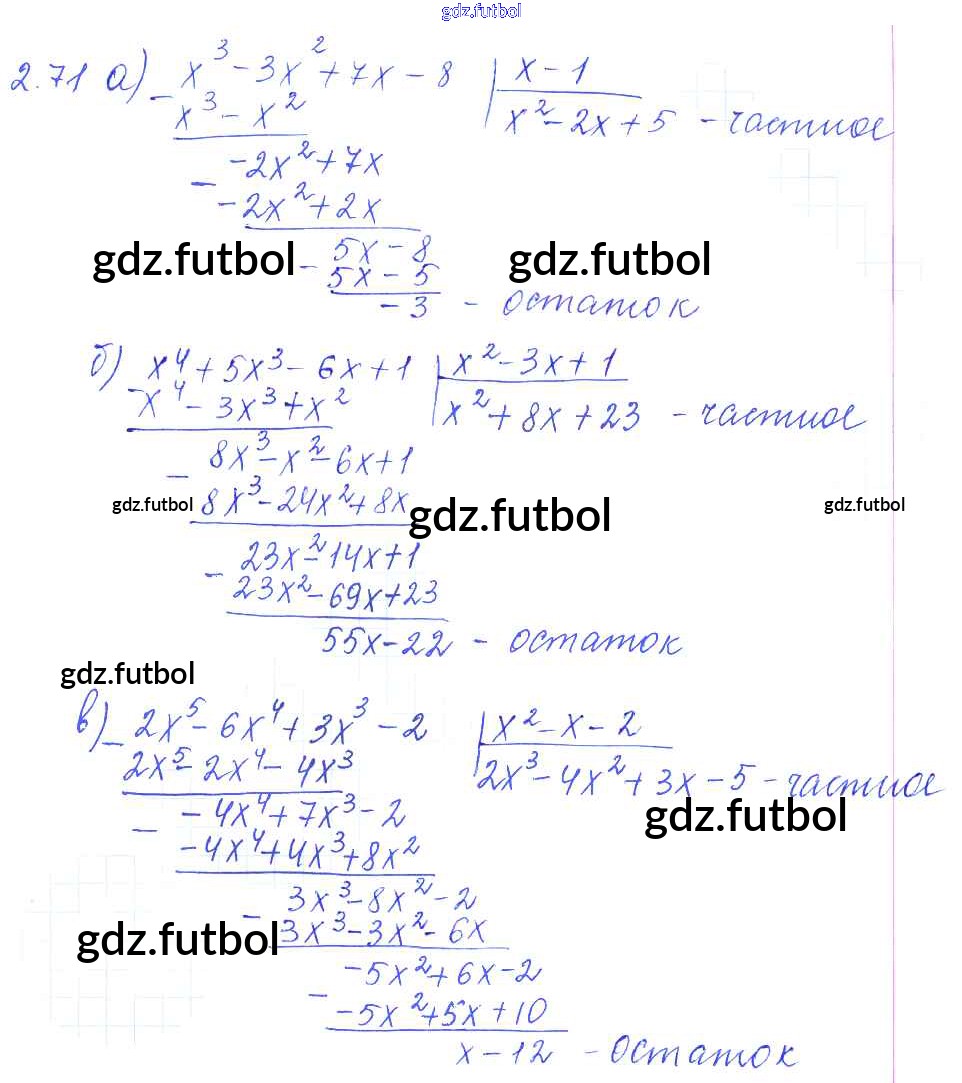 gdz.futbol
2.71 а) x³ - 3x² + 7x - 8 | x - 1
x³ - x² x² - 2x + 5 - частное
- -2x² + 7x
-2x² + 2x
gdz.futbol - 5x - 8 gdz.futbol
5x - 5
-3 - остаток
б) x⁴ + 5x³ - 6x + 1 | x² - 3x + 1
- x⁴ - 3x³ + x² x² + 8x + 23 - частное
- 8x³ - x² - 6x + 1
gdz.futbol 8x³ - 24x² + 8x gdz.futbol gdz.futbol
- 23x² - 14x + 1
23x² - 69x + 23
55x - 22 - остаток
gdz.futbol
в) - 2x⁵ - 6x⁴ + 3x³ - 2 | x² - x - 2
2x⁵ - 2x⁴ - 4x³ 2x³ - 4x² + 3x - 5 - частное
- -4x⁴ + 7x³ - 2 gdz.futbol
-4x⁴ + 4x³ + 8x²
- 3x³ - 8x² - 2
gdz.futbol 3x³ - 3x² - 6x
- -5x² + 6x - 2
-5x² + 5x + 10
x - 12 - остаток